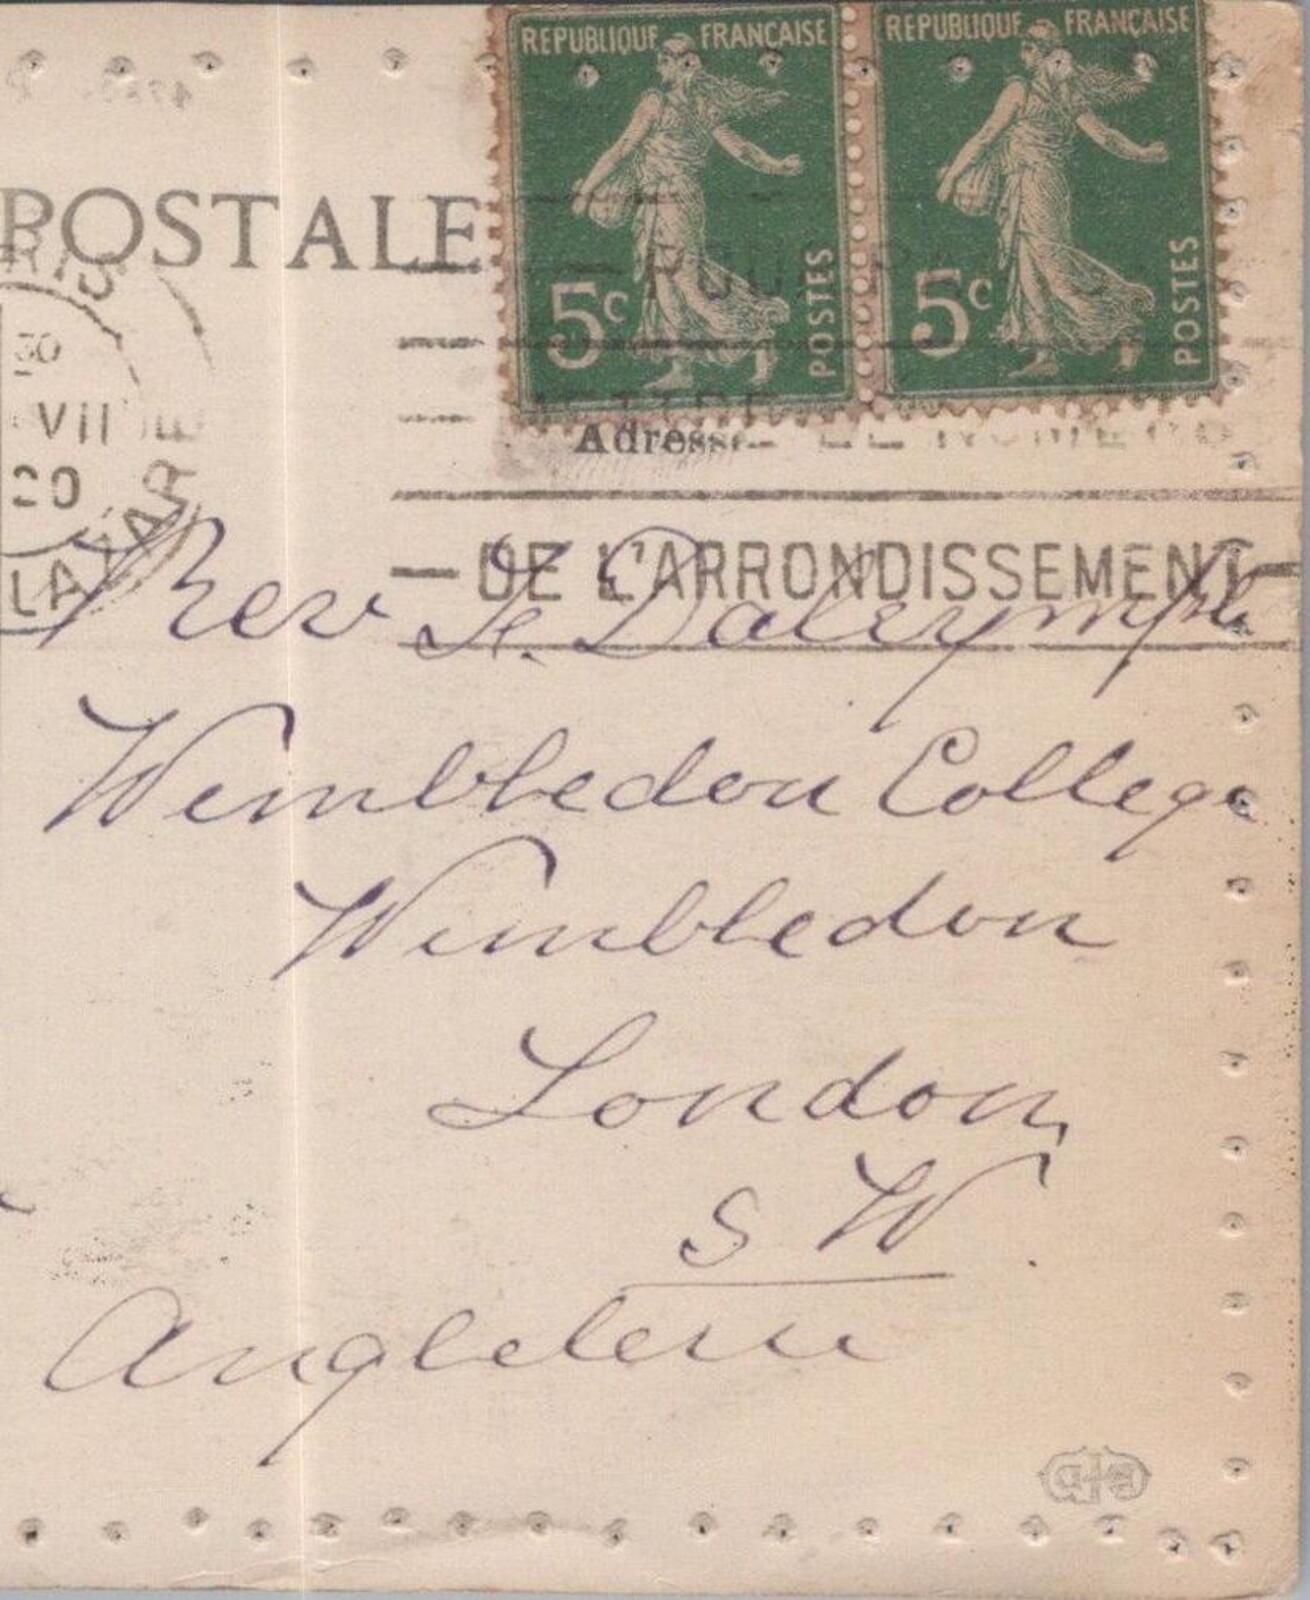 REPUBLIQUE FRANÇAISE
5c
POSTES
REPUBLIQUE FRANÇAISE
5c
POSTES
POSTALE
30
VII
20
LAZARE
POUR
Adresse
DE L'ARRONDISSEMENT
Rev F. Dalrymple
Wimbledon College
Wimbledon
London,
S W.
Angleterre